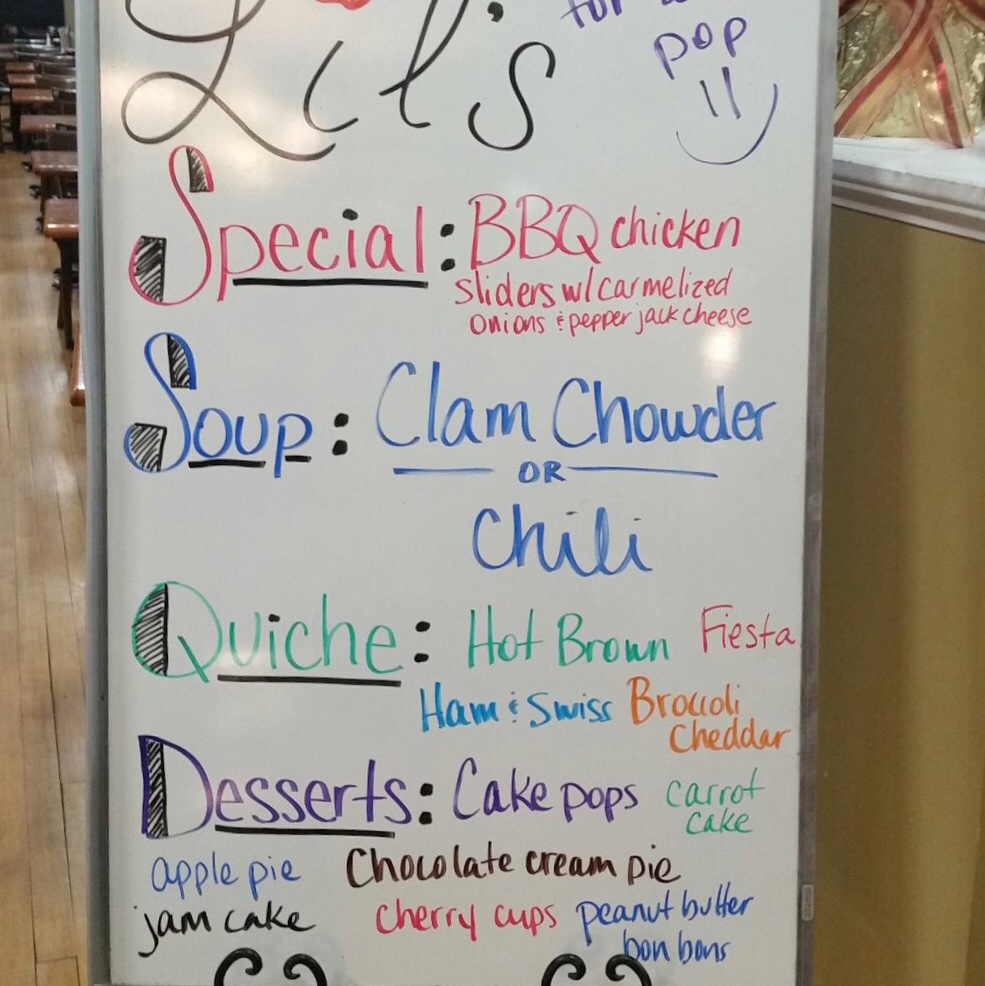 Lil's
for
pop
Special: BBQ chicken
sliders w/ carmelized
onions & pepper jack cheese
Soup: Clam Chowder
OR
Chili
Quiche: Hot Brown Fiesta
Ham & Swiss Broccoli
Cheddar
Desserts: Cake pops carrot
cake
apple pie Chocolate cream pie
jam cake cherry cups peanut butter
bon bons